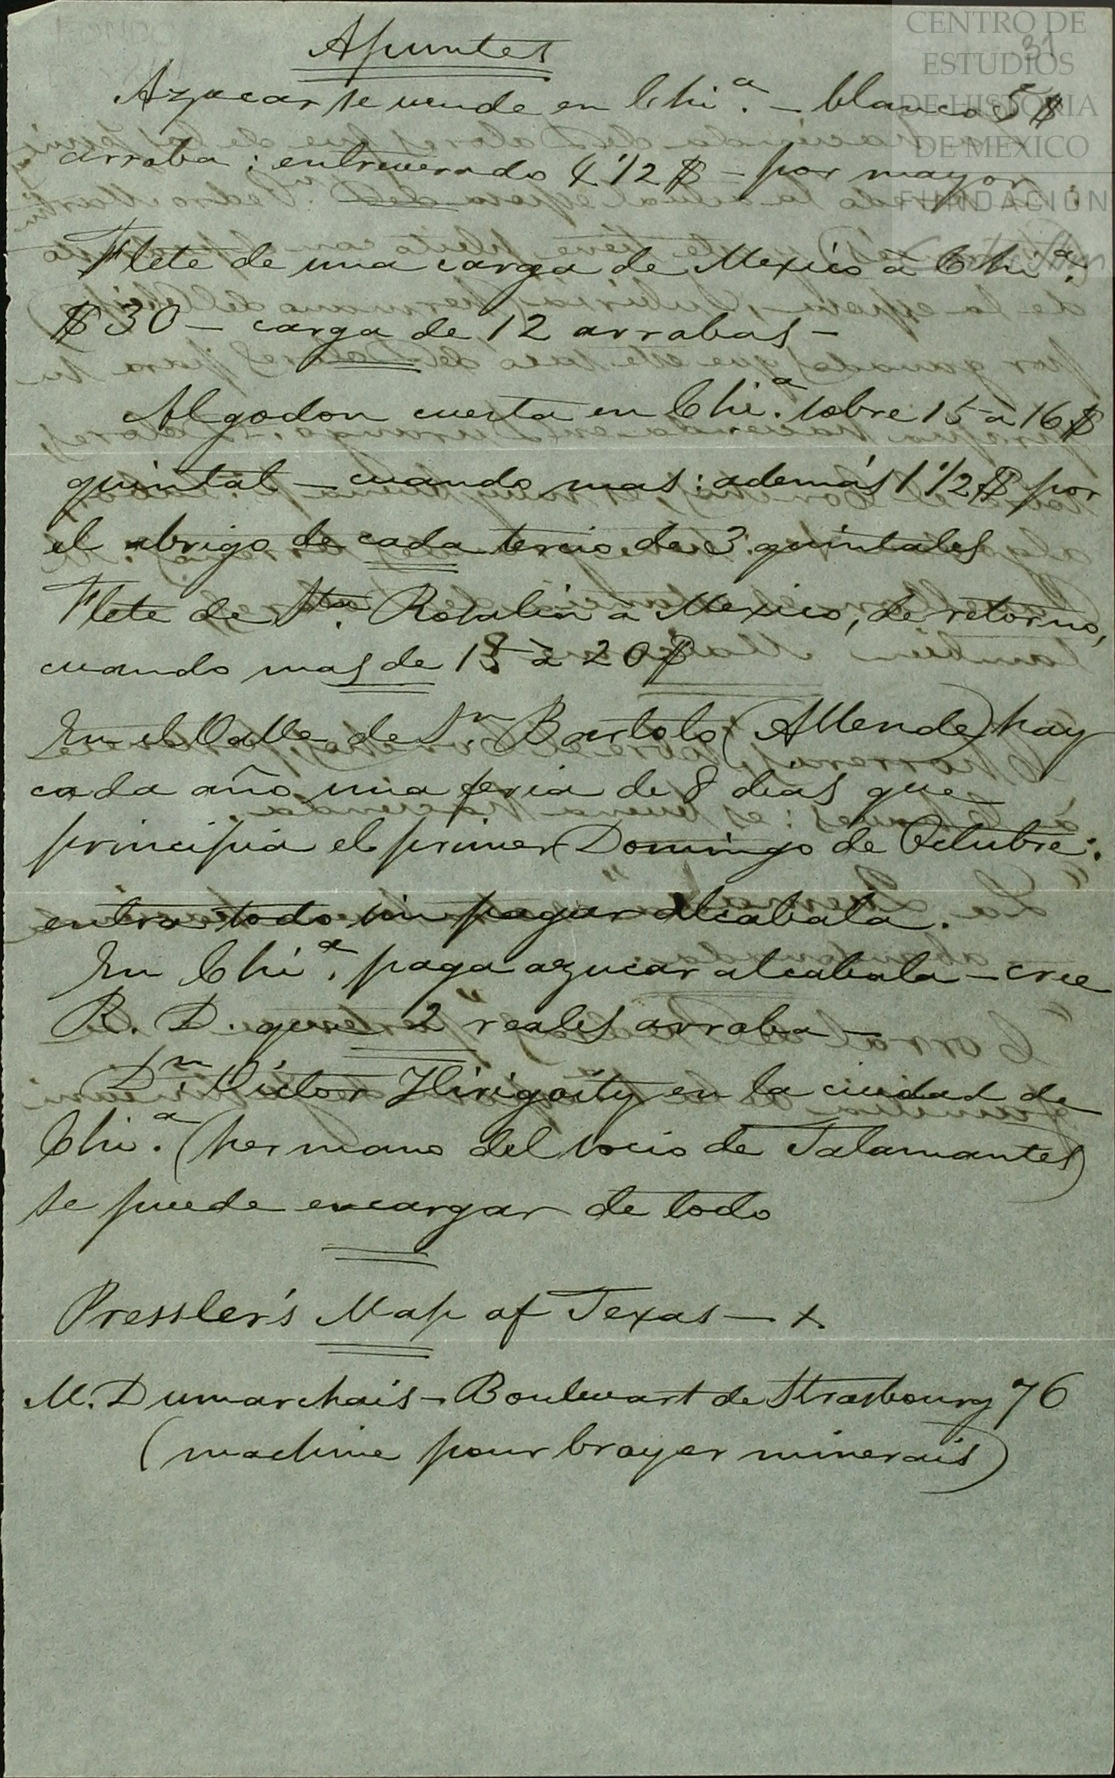 CENTRO DE
ESTUDIOS
DE HISTORIA
DE MEXICO
FUNDACIÓN
31
Apuntes
Azucar se vende en Chiª. – blanco 5 $
arroba; entreverado 4 1/2 $ – por mayor.
Flete de una carga de Mexico a Chiª.
$ 30 – carga de 12 arrobas –
Algodon cuesta en Chiª. sobre 15 a 16 $
quintal – cuando mas: además 1 1/2 $ por
el abrigo de cada tercio de 3 quintales
Flete de Sta. Rosalia a Mexico, de retorno,
cuando mas de 18 a 20 $
En el Valle de Sn. Bartolo (Allende) hay
cada año una feria de 8 dias que
principia el primer Domingo de Octubre:
entra todo sin pagar alcabala.
En Chiª. paga azucar alcabala – cree
R. D. que 2 reales arroba –
Dn. Victor Hirigoity en la ciudad de
Chiª. (hermano del socio de Talamantes)
se puede encargar de todo
Pressler's Map of Texas – x.
M. Dumarchais – Boulevart de Strasbourg 76
(machine pour broyer minerais)